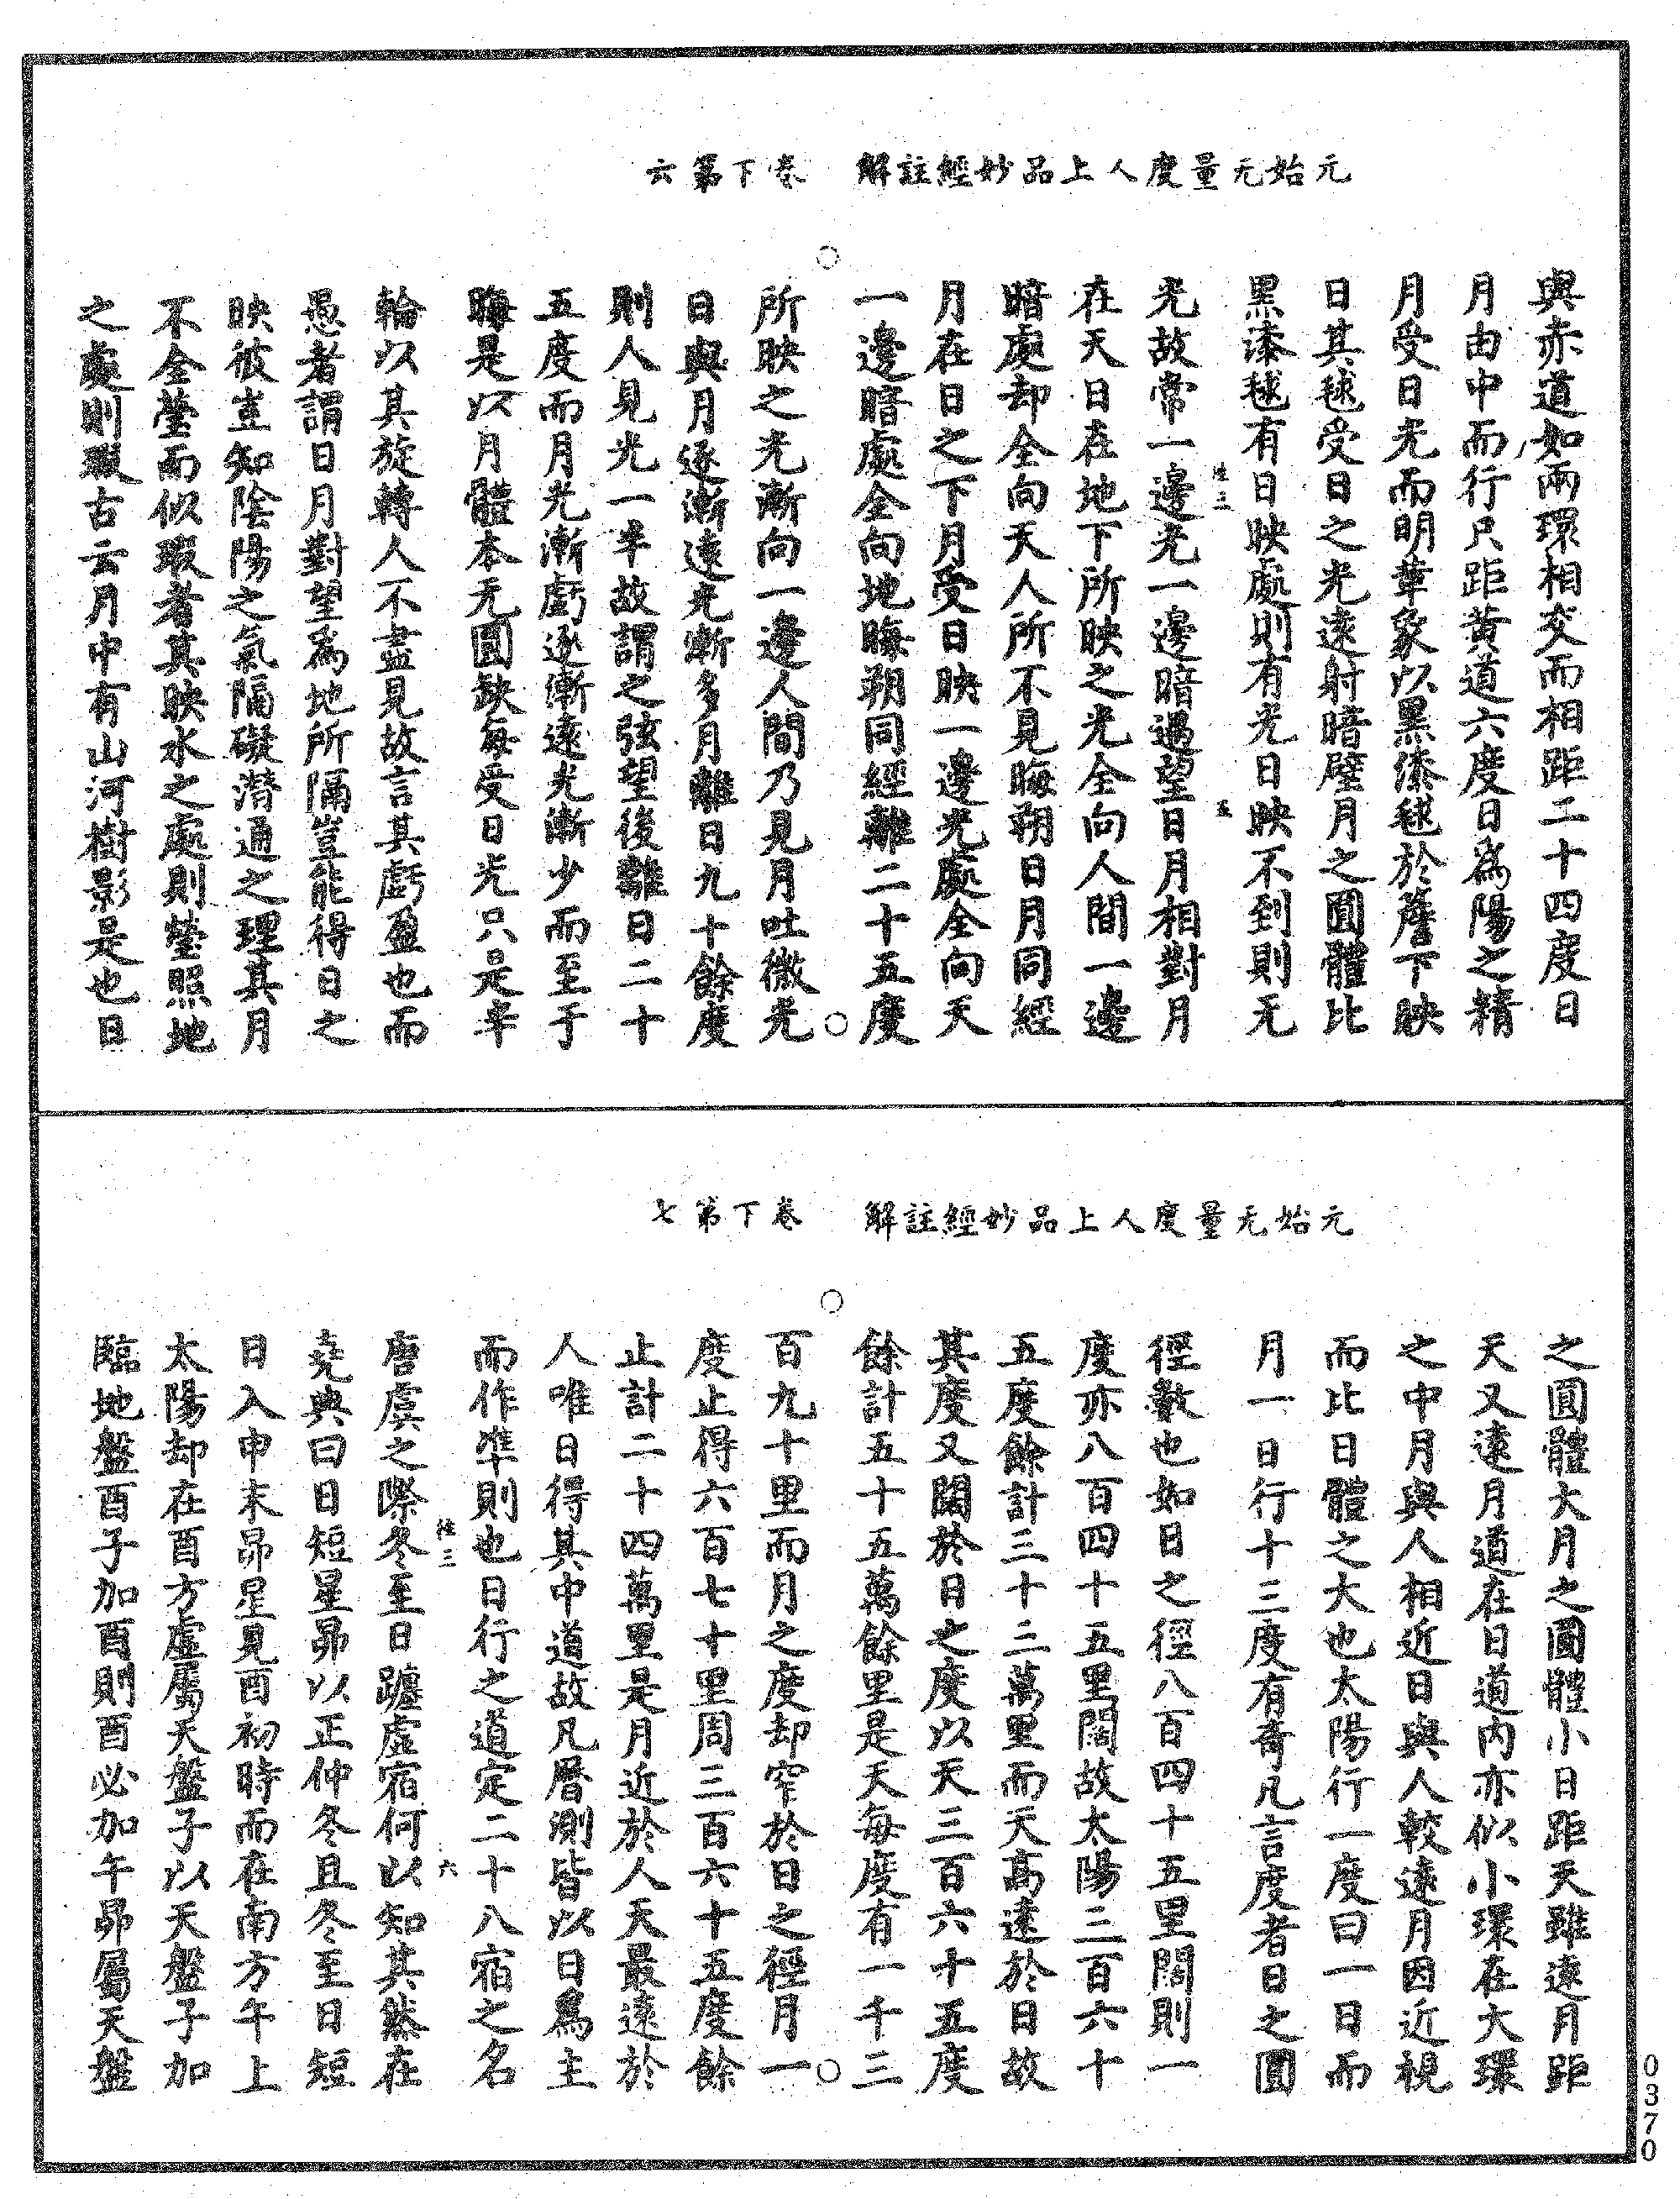 元始无量度人上品妙經註解　卷下第六
與赤道如兩環相交而相距二十四度日
月由中而行只距黃道六度日為陽之精
月受日光而明華象以黑漆毬於簷下映
日其毬受日之光遠射暗壁月之圓體比
黑漆毬有日映處則有光日映不到則无
光故常一邊光一邊暗遇望日月相對月
在天日在地下所映之光全向人間一邊
暗處却全向天人所不見晦朔日月同經
月在日之下月受日映一邊光處全向天
一邊暗處全向地晦朔同經離二十五度
所映之光漸向一邊人間乃見月吐微光
日與月逐漸遠光漸多月離日九十餘度
則人見光一半故謂之弦望後離日二十
五度而月光漸虧逐漸遠光漸少而至于
晦是以月體本无圓缺每受日光只是半
輪以其旋轉人不盡見故言其虧盈也而
愚者謂日月對望為地所隔豈能得日之
映彼豈知陰陽之氣隔礙潛通之理其月
不全瑩而似瑕者其映水之處則瑩照地
之處則瑕古云月中有山河樹影是也日
陸三
五
元始无量度人上品妙經註解　卷下第七
之圓體大月之圓體小日距天雖遠月距
天又遠月道在日道內亦似小環在大環
之中月與人相近日與人較遠月因近視
而比日體之大也太陽行一度曰一日而
月一日行十三度有奇凡言度者日之圓
徑數也如日之徑八百四十五里闊則一
度亦八百四十五里闊故太陽三百六十
五度餘計三十二萬里而天高遠於日故
其度又闊於日之度以天三百六十五度
餘計五十五萬餘里是天每度有一千三
百九十里而月之度却窄於日之徑月一
度止得六百七十里周三百六十五度餘
止計二十四萬里是月近於人天最遠於
人唯日得其中道故凡曆測皆以日為主
而作準則也日行之道定二十八宿之名
唐虞之際冬至日躔虛宿何以知其然在
堯典曰日短星昴以正仲冬且冬至日短
日入申末昴星見酉初時而在南方午上
太陽却在酉方虛屬天盤子以天盤子加
臨地盤酉子加酉則酉必加午昴屬天盤
陸三
六
0370